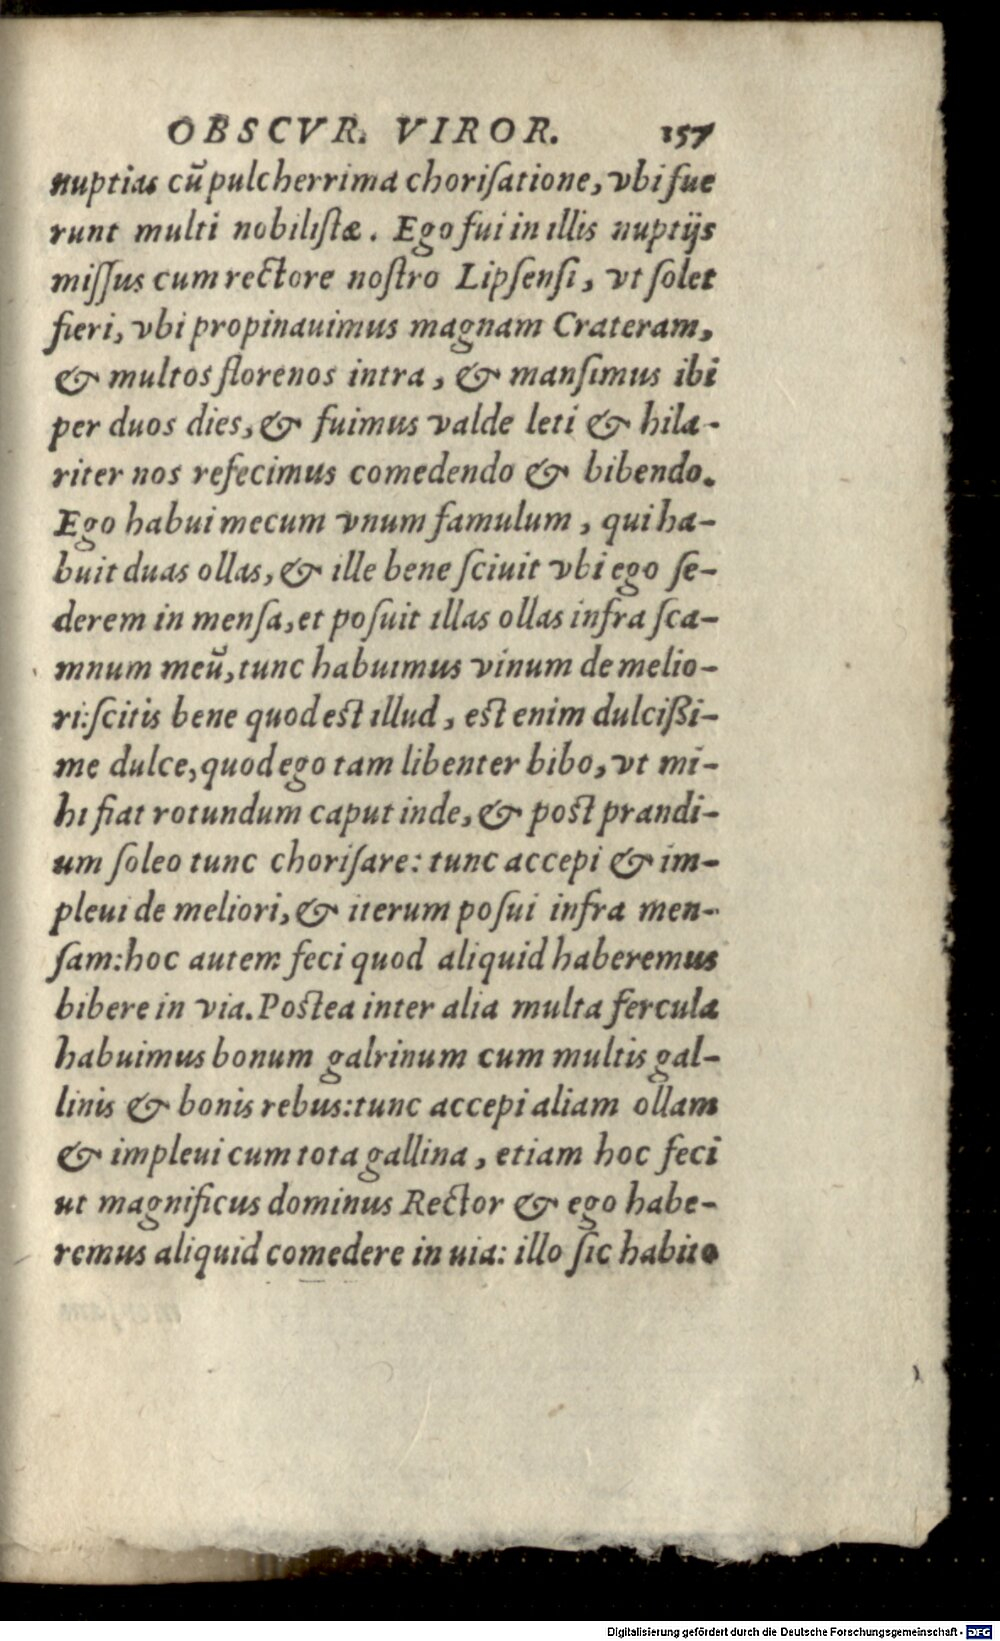 OBSCVR. VIROR. 157
nuptias cũ pulcherrima chorisatione, vbi fue
runt multi nobilistæ. Ego fui in illis nuptijs
missus cum rectore nostro Lipsensi, vt solet
fieri, vbi propinauimus magnam Crateram,
& multos florenos intra, & mansimus ibi
per duos dies, & fuimus valde leti & hila-
riter nos refecimus comedendo & bibendo.
Ego habui mecum vnum famulum, qui ha-
buit duas ollas, & ille bene sciuit vbi ego se-
derem in mensa, et posuit illas ollas infra sca-
mnum meũ, tunc habuimus vinum de melio-
ri: scitis bene quod est illud, est enim dulcißi-
me dulce, quod ego tam libenter bibo, vt mi-
hi fiat rotundum caput inde, & post prandi-
um soleo tunc chorisare: tunc accepi & im-
pleui de meliori, & iterum posui infra men-
sam: hoc autem feci quod aliquid haberemus
bibere in via. Postea inter alia multa fercula
habuimus bonum galrinum cum multis gal-
linis & bonis rebus: tunc accepi aliam ollam
& impleui cum tota gallina, etiam hoc feci
ut magnificus dominus Rector & ego habe-
remus aliquid comedere in uia: illo sic habito
Digitalisierung gefördert durch die Deutsche Forschungsgemeinschaft - DFG